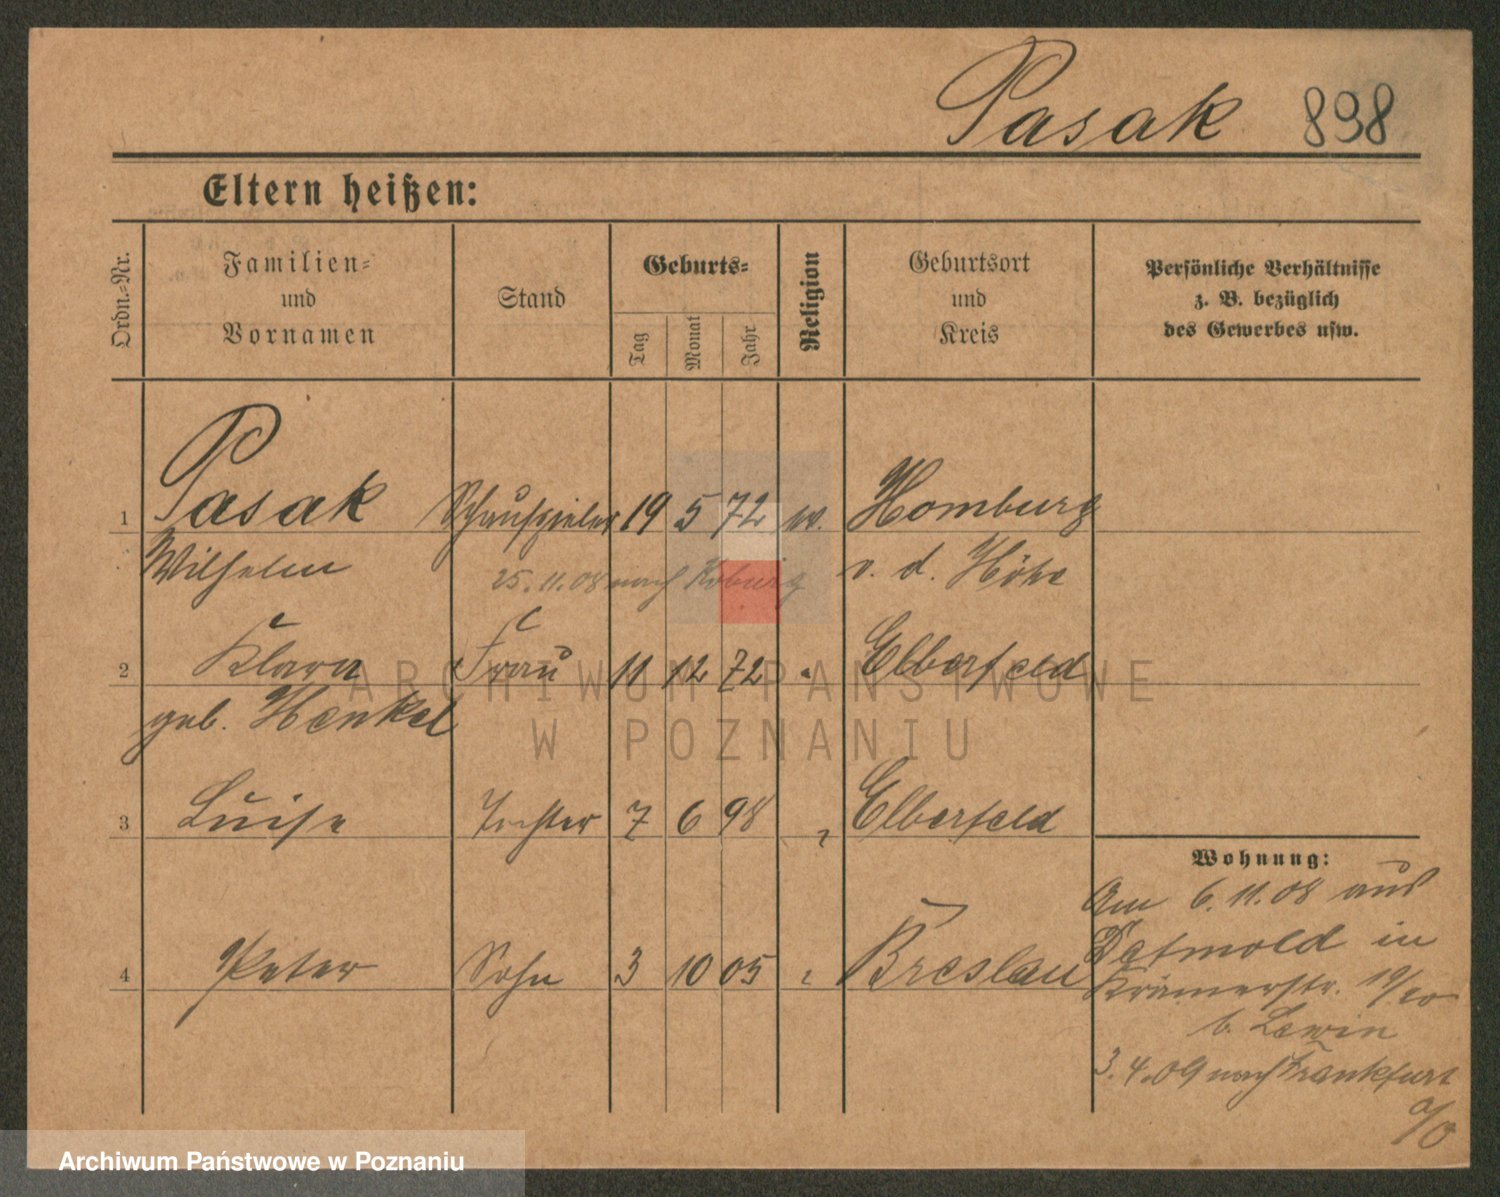 Pasak 898
Eltern heißen:
Ordn.-Nr.
Familien-
und
Vornamen
Stand
Geburts-
Tag
Monat
Jahr
Religion
Geburtsort
und
Kreis
Persönliche Verhältnisse
z. B. bezüglich
des Gewerbes usw.
1 Pasak Schauspieler 19 5 72 Homburg
Wilhelm v. d. Höhe
25.11.08 nach Koburg
2 Klara Frau 11 12 72 " Elberfeld
geb. Henkel
3 Luise Tochter 7 6 98 " Elberfeld
4 Peter Sohn 3 10 05 " Breslau
Wohnung:
Am 6.11.08 aus
Detmold in
Krämerstr. 19/20
b. Lewin
3.4.09 nach Frankfurt
a/O
ARCHIWUM PAŃSTWOWE
W POZNANIU
Archiwum Państwowe w Poznaniu